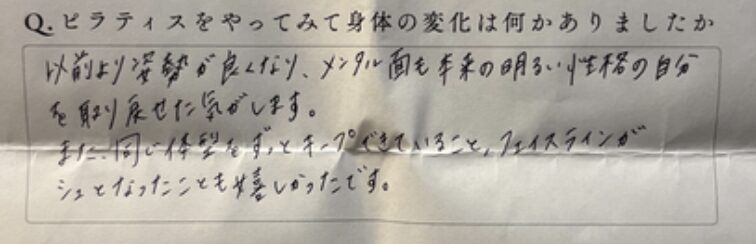 Q.ピラティスをやってみて身体の変化は何かありましたか
以前より姿勢が良くなり、メンタル面も本来の明るい性格の自分
を取り戻せた気がします。
また、同じ体型をずっとキープできていること、フェイスラインが
シュとなったことも嬉しかったです。